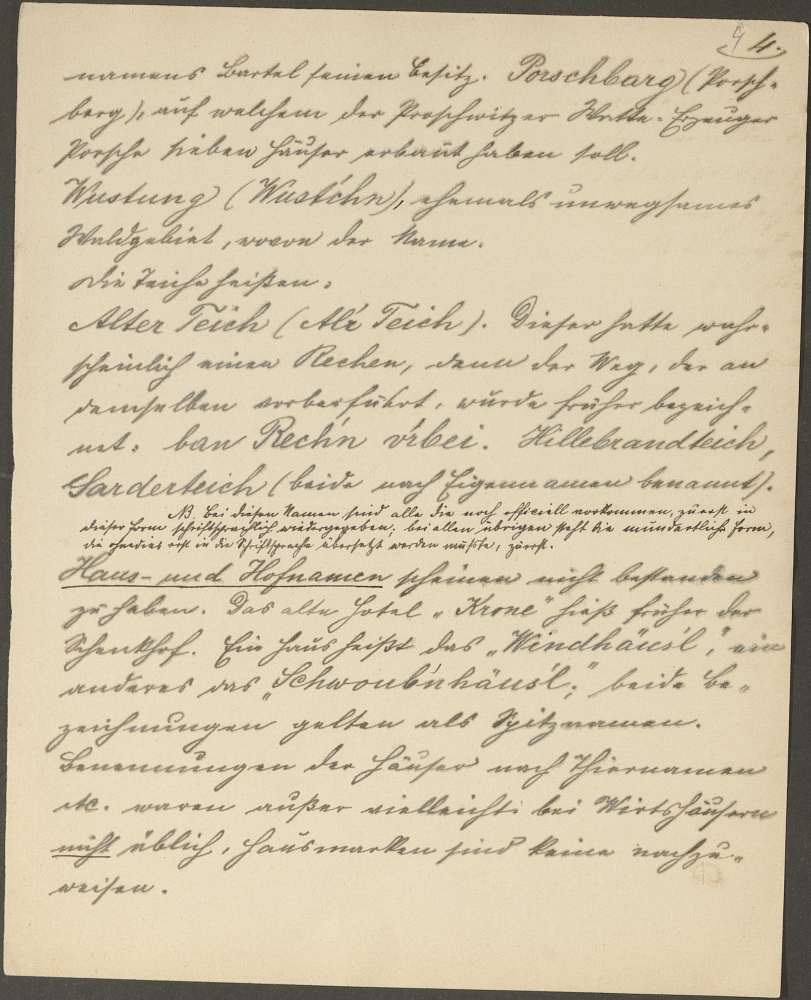 4.
namens Bartel seinen Besitz. Porschbarg (Porsch-
berg), auf welchem der Proschwitzer Watta-Erzeuger
Porsche sieben Häuser erbaut haben soll.
Wustung (Wustchn), ehemals unwegsames
Waldgebiet, wovon der Name.
Die Teiche heißen:
Alter Teich (Alr Teich). Dieser hatte wahr-
scheinlich einen Rechen, denn der Weg, der an
demselben vorbeiführt, wurde früher bezeich-
net: ban Rech'n v'rbei. Hillebrandteich,
Sarderteich (beide nach Eigennamen benannt).
NB. Bei diesen Namen sind alle die noch officiell vorkommen, zuerst in
dieser Form schriftsprachlich wiedergegeben; bei allen übrigen steht die mundartliche Form,
die ohnedies erst in die Schriftsprache übersetzt werden müsste, zuerst.
Haus- und Hofnamen scheinen nicht bestanden
zu haben. Das alte Hotel „Krone" hieß früher der
Schenkhof. Ein Haus heißt das „Windhäus'l", ein
anderes das „Schwoub'nhäus'l;" beide Be-
zeichnungen gelten als Spitznamen.
Benennungen der Häuser nach Thiernamen
etc. waren außer vielleicht bei Wirtshäusern
nicht üblich, Hausmarken sind keine nachzu-
weisen.